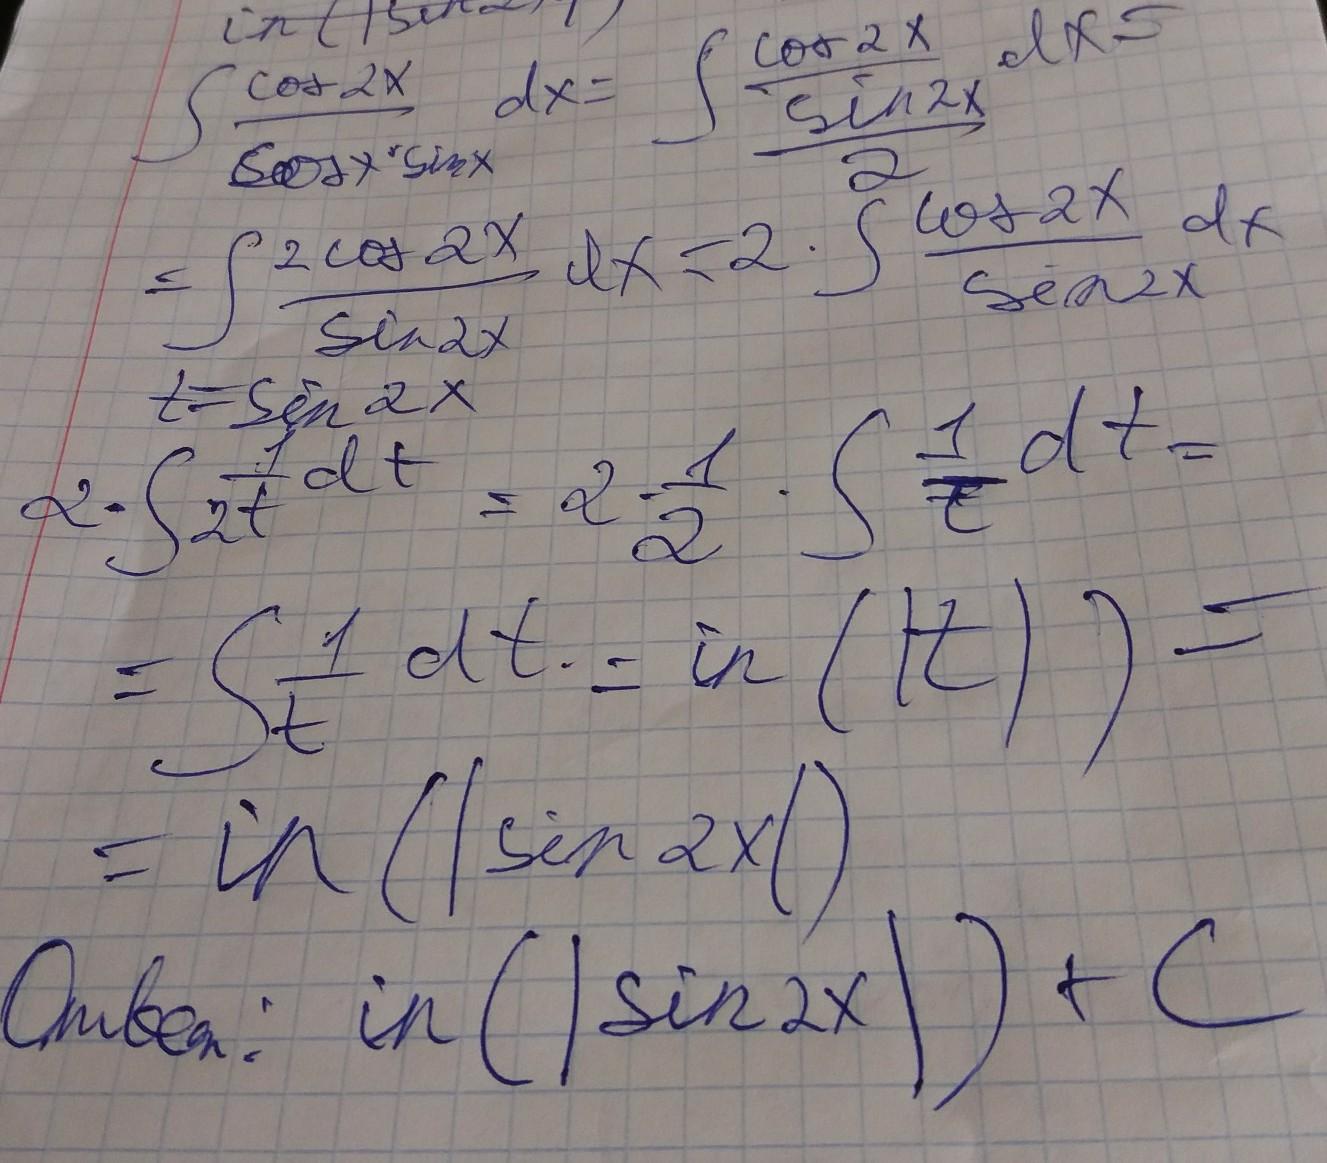 in(|sin2x|)
∫ cos2x / cosx·sinx dx = ∫ cos2x / (sin2x / 2) dx =
= ∫ 2cos2x / sin2x dx = 2 · ∫ cos2x / sin2x dx
t = sin2x
2 · ∫ 1/2t dt = 2 · 1/2 · ∫ 1/t dt =
= ∫ 1/t dt. = in(|t|) =
= in(|sin2x|)
Ответ: in(|sin2x|) + C